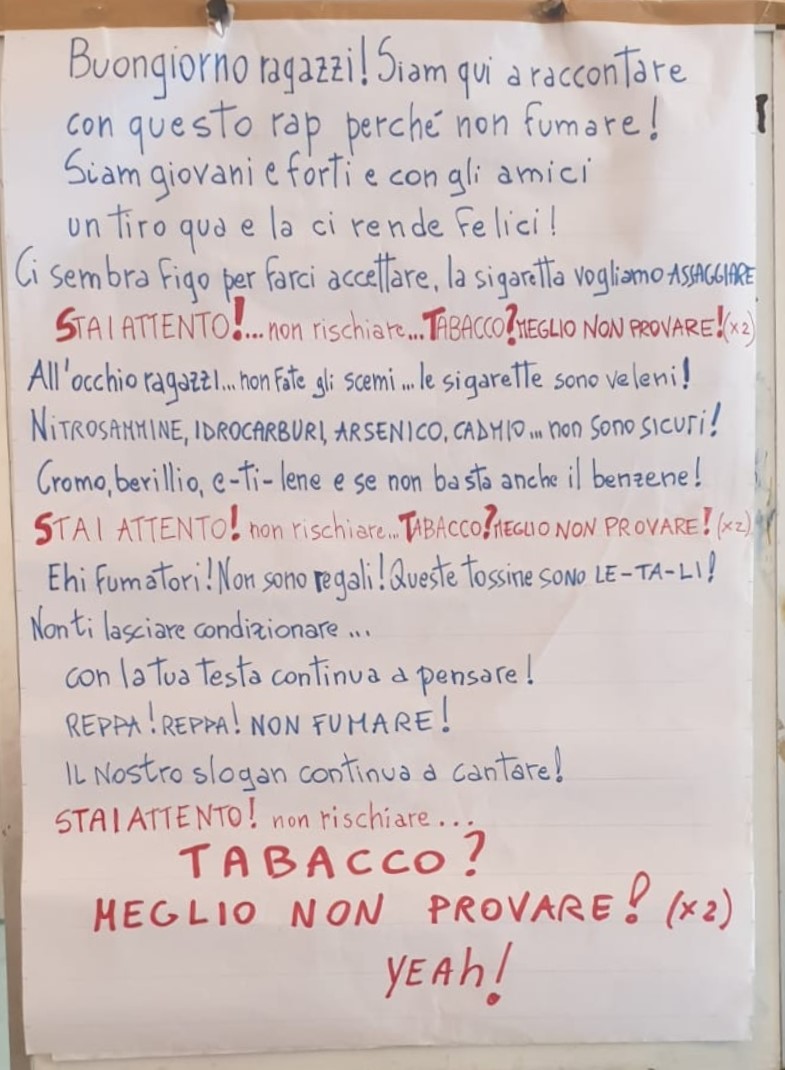 Buongiorno ragazzi! Siam qui a raccontare
con questo rap perché non fumare!
Siam giovani e forti e con gli amici
un tiro qua e la ci rende felici!
Ci sembra figo per farci accettare, la sigaretta vogliamo ASSAGGIARE
STAI ATTENTO!... non rischiare... TABACCO? MEGLIO NON PROVARE! (x2)
All'occhio ragazzi... non fate gli scemi... le sigarette sono veleni!
NITROSAMMINE, IDROCARBURI, ARSENICO, CADMIO... non sono sicuri!
Cromo, berillio, e-ti-lene e se non basta anche il benzene!
STAI ATTENTO! non rischiare... TABACCO? MEGLIO NON PROVARE! (x2)
Ehi fumatori! Non sono regali! Queste tossine SONO LE-TA-LI!
Non ti lasciare condizionare ...
con la tua testa continua a pensare!
REPPA! REPPA! NON FUMARE!
IL Nostro slogan continua a cantare!
STAI ATTENTO! non rischiare...
TABACCO?
MEGLIO NON PROVARE! (x2)
YEAh!